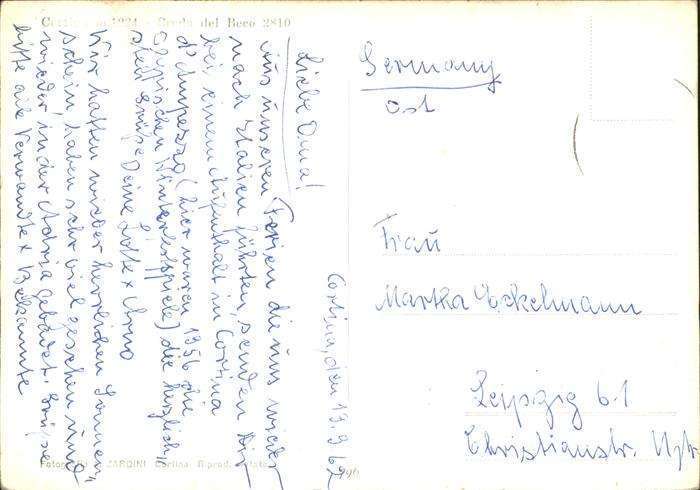 Cortina m. 1224 - Croda del Becó 2810
Cortina, den 13.9.62
Liebe Oma!
Aus unseren Ferien die uns wieder
nach Italien führten, senden Dir
bei einem Aufenthalt in Cortina
d'Ampezzo (hier waren 1956 die
olympischen Winterspiele) die herzlich=
sten Grüße Deine Lotte + Arno
Wir hatten wieder herrlichen Sonnen=
schein, haben sehr viel gesehen und
wieder in der Adria gebadet. Grüße
bitte alle Verwandte + Bekannte
Germany
Ost
Frau
Martha Eckelmann
Leipzig 61
Christianstr.
ZARDINI Cortina. Riprod. vietata